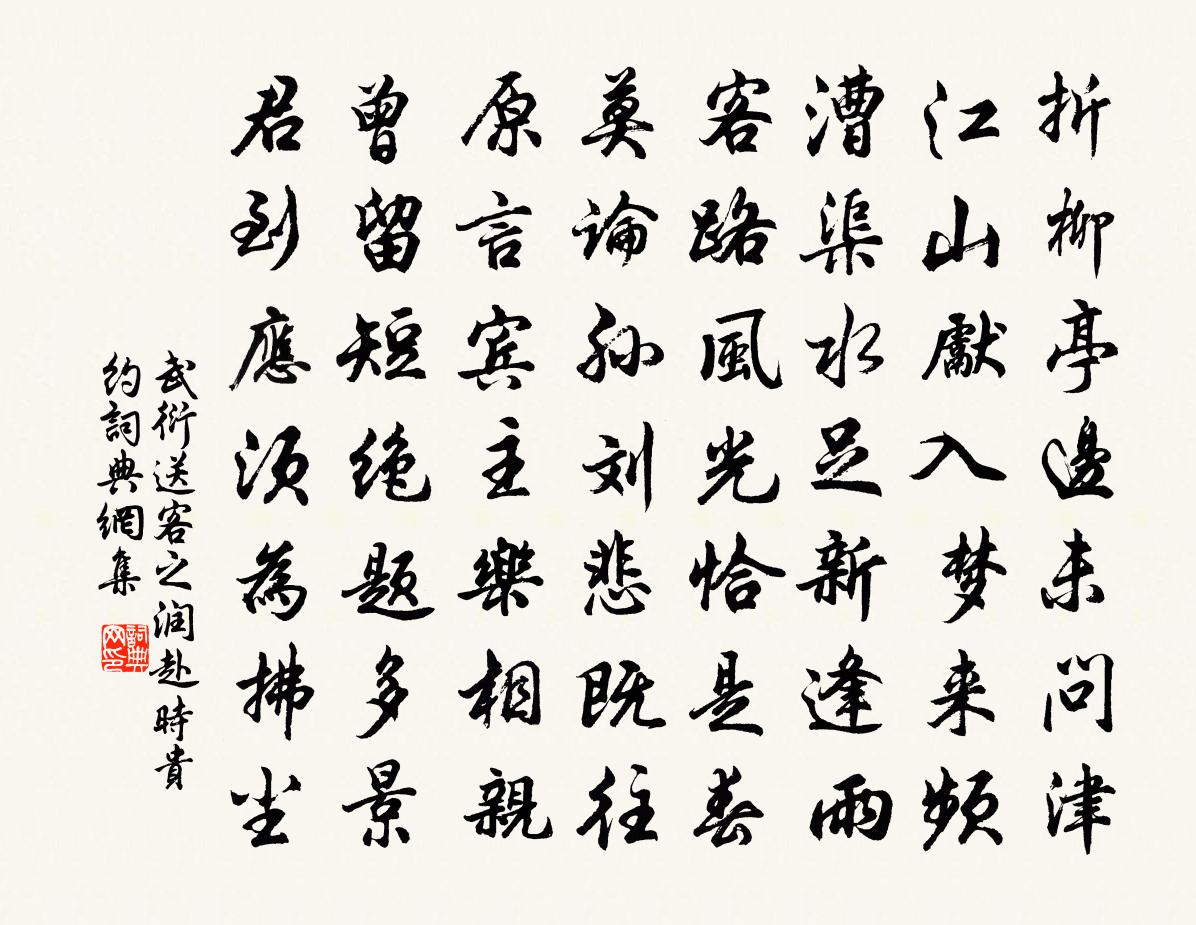 折柳亭邊未问津
江山獻入梦来频
漕渠水足新逢雨
客路風光恰是春
莫論孙刘悲既往
原言宾主樂相親
曾留短绝题多景
君到應须為拂尘
武衍送客之润赴時貴
约詞典網集
詞典网印